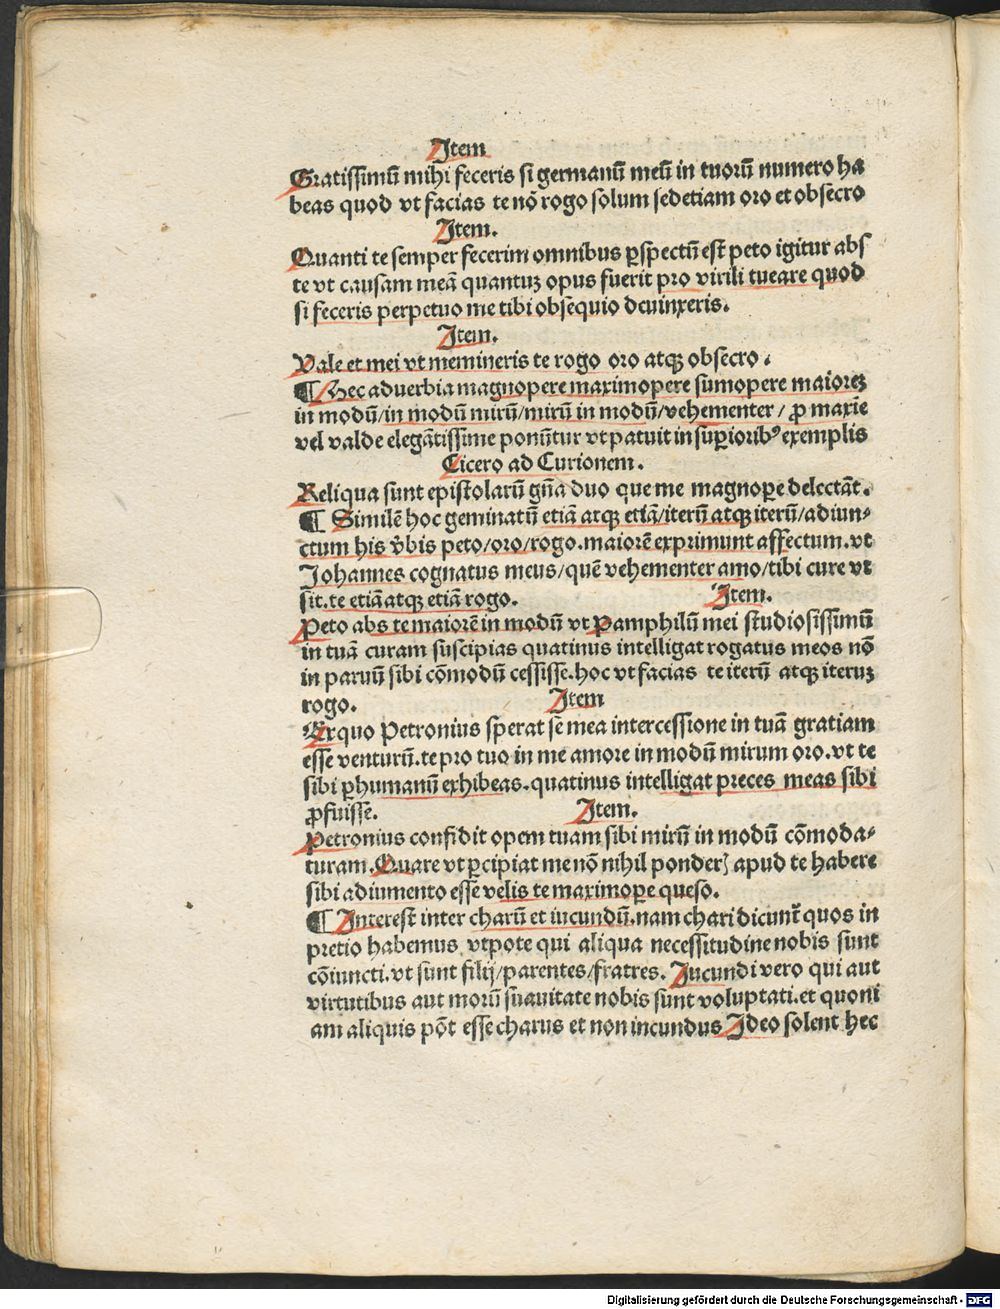 Item
Gratissimū mihi feceris si germanū meū in tuorū numero ha
beas quod vt facias te nō rogo solum sedetiam oro et obsecro
Item.
Quanti te semper fecerim omnibus ꝑspectū est peto igitur abs
te vt causam meā quantuʒ opus fuerit pro virili tueare quod
si feceris perpetuo me tibi obsequio deuinxeris.
Item.
Vale et mei vt memineris te rogo oro atqꝫ obsecro.
¶ Hec aduerbia magnopere maximopere sumopere maioreʒ
in modū/in modū mirū/mirū in modū/vehementer/ ꝓ maxīe
vel valde elegātissime ponūtur vt patuit in suꝑioribꝰ exemplis
Cicero ad Curionem.
Reliqua sunt epistolarū gn̄a duo que me magnoꝑe delectāt.
¶ Similē hoc geminatū etiā atqꝫ etiā/iterū atqꝫ iterū/adiun⸗
ctum his v̄bis peto/oro/rogo.maiorē exprimunt affectum.vt
Johannes cognatus meus/quē vehementer amo/tibi cure vt
sit.te etiā atqꝫ etiā rogo. Item.
Peto abs te maiorē in modū vt Pamphilū mei studiosissimū
in tuā curam suscipias quatinus intelligat rogatus meos nō
in paruū sibi cōmodū cessisse.hoc vt facias te iterū atqꝫ iteruʒ
rogo. Item
Exquo Petronius sperat se mea intercessione in tuā gratiam
esse venturū.te pro tuo in me amore in modū mirum oro.vt te
sibi ꝑhumanū exhibeas.quatinus intelligat preces meas sibi
ꝓfuisse. Item.
Petronius confidit opem tuam sibi mirū in modū cōmoda⸗
turam.Quare vt ꝑcipiat me nō nihil ponderꝭ apud te habere
sibi adiumento esse velis te maximoꝑe queso.
¶ Interest inter charū et iucundū.nam chari dicunt̄ quos in
pretio habemus vtpote qui aliqua necessitudine nobis sunt
cōiuncti.vt sunt filij/parentes/fratres. Jucundi vero qui aut
virtutibus aut morū suauitate nobis sunt voluptati.et quoni
am aliquis pōt esse charus et non incundus Ideo solent hec
Digitalisierung gefördert durch die Deutsche Forschungsgemeinschaft - DFG